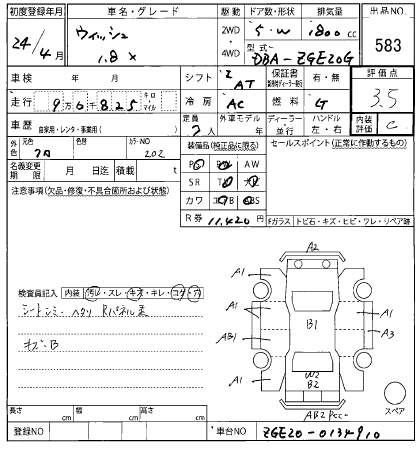 初度登録年月 車名・グレード 駆動 ドア数・形状 排気量 出品NO.
24/4月 ウィッシュ 1.8X 2WD 4WD 5・W 1800cc 583
型式 DBA-ZGE20G
車検 年 月 シフト AT 保証書 有・無 評価点 3.5
走行 9万6千825 キロ マイル 冷房 AC 燃料 G
車歴 自家用・レンタ・事業用( ) 定員 7人 外車モデル 年 ディーラー・並行 ハンドル 左・右 内装評価 C
外色 元色 クロ 色替 カラーNO 202 装備品(純正品に限る) セールスポイント(正常に作動するもの)
名義変更期限 月 日迄 積載 t PS PW AW
注意事項(欠品・修復・不具合箇所および状態) SR TV ナビ
カワ エアB ABS
R券 11,420 Fガラス トビ石・キズ・ヒビ・ワレ・リペア跡
A2
A1 A1
検査員記入 内装 汚レ・スレ・キズ・キレ・コゲ・穴
A1 B1 A1
AB1 A3
キズ・B
A1 W2 B2 A1
AB2
スペア
長さ cm 幅 cm 高さ cm
登録NO 車台NO ZGE20-0134910